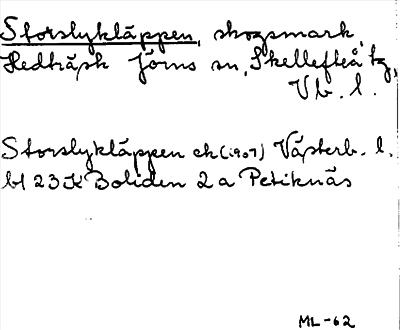 Storslykläppen, skogsmark,
Hedträsk Jörns sn, Skellefteå tg,
Vb. l.
Storslykläppen ek (1907) Västerb. l.
bl 23 K Boliden 2 a Petiknäs
ML-62